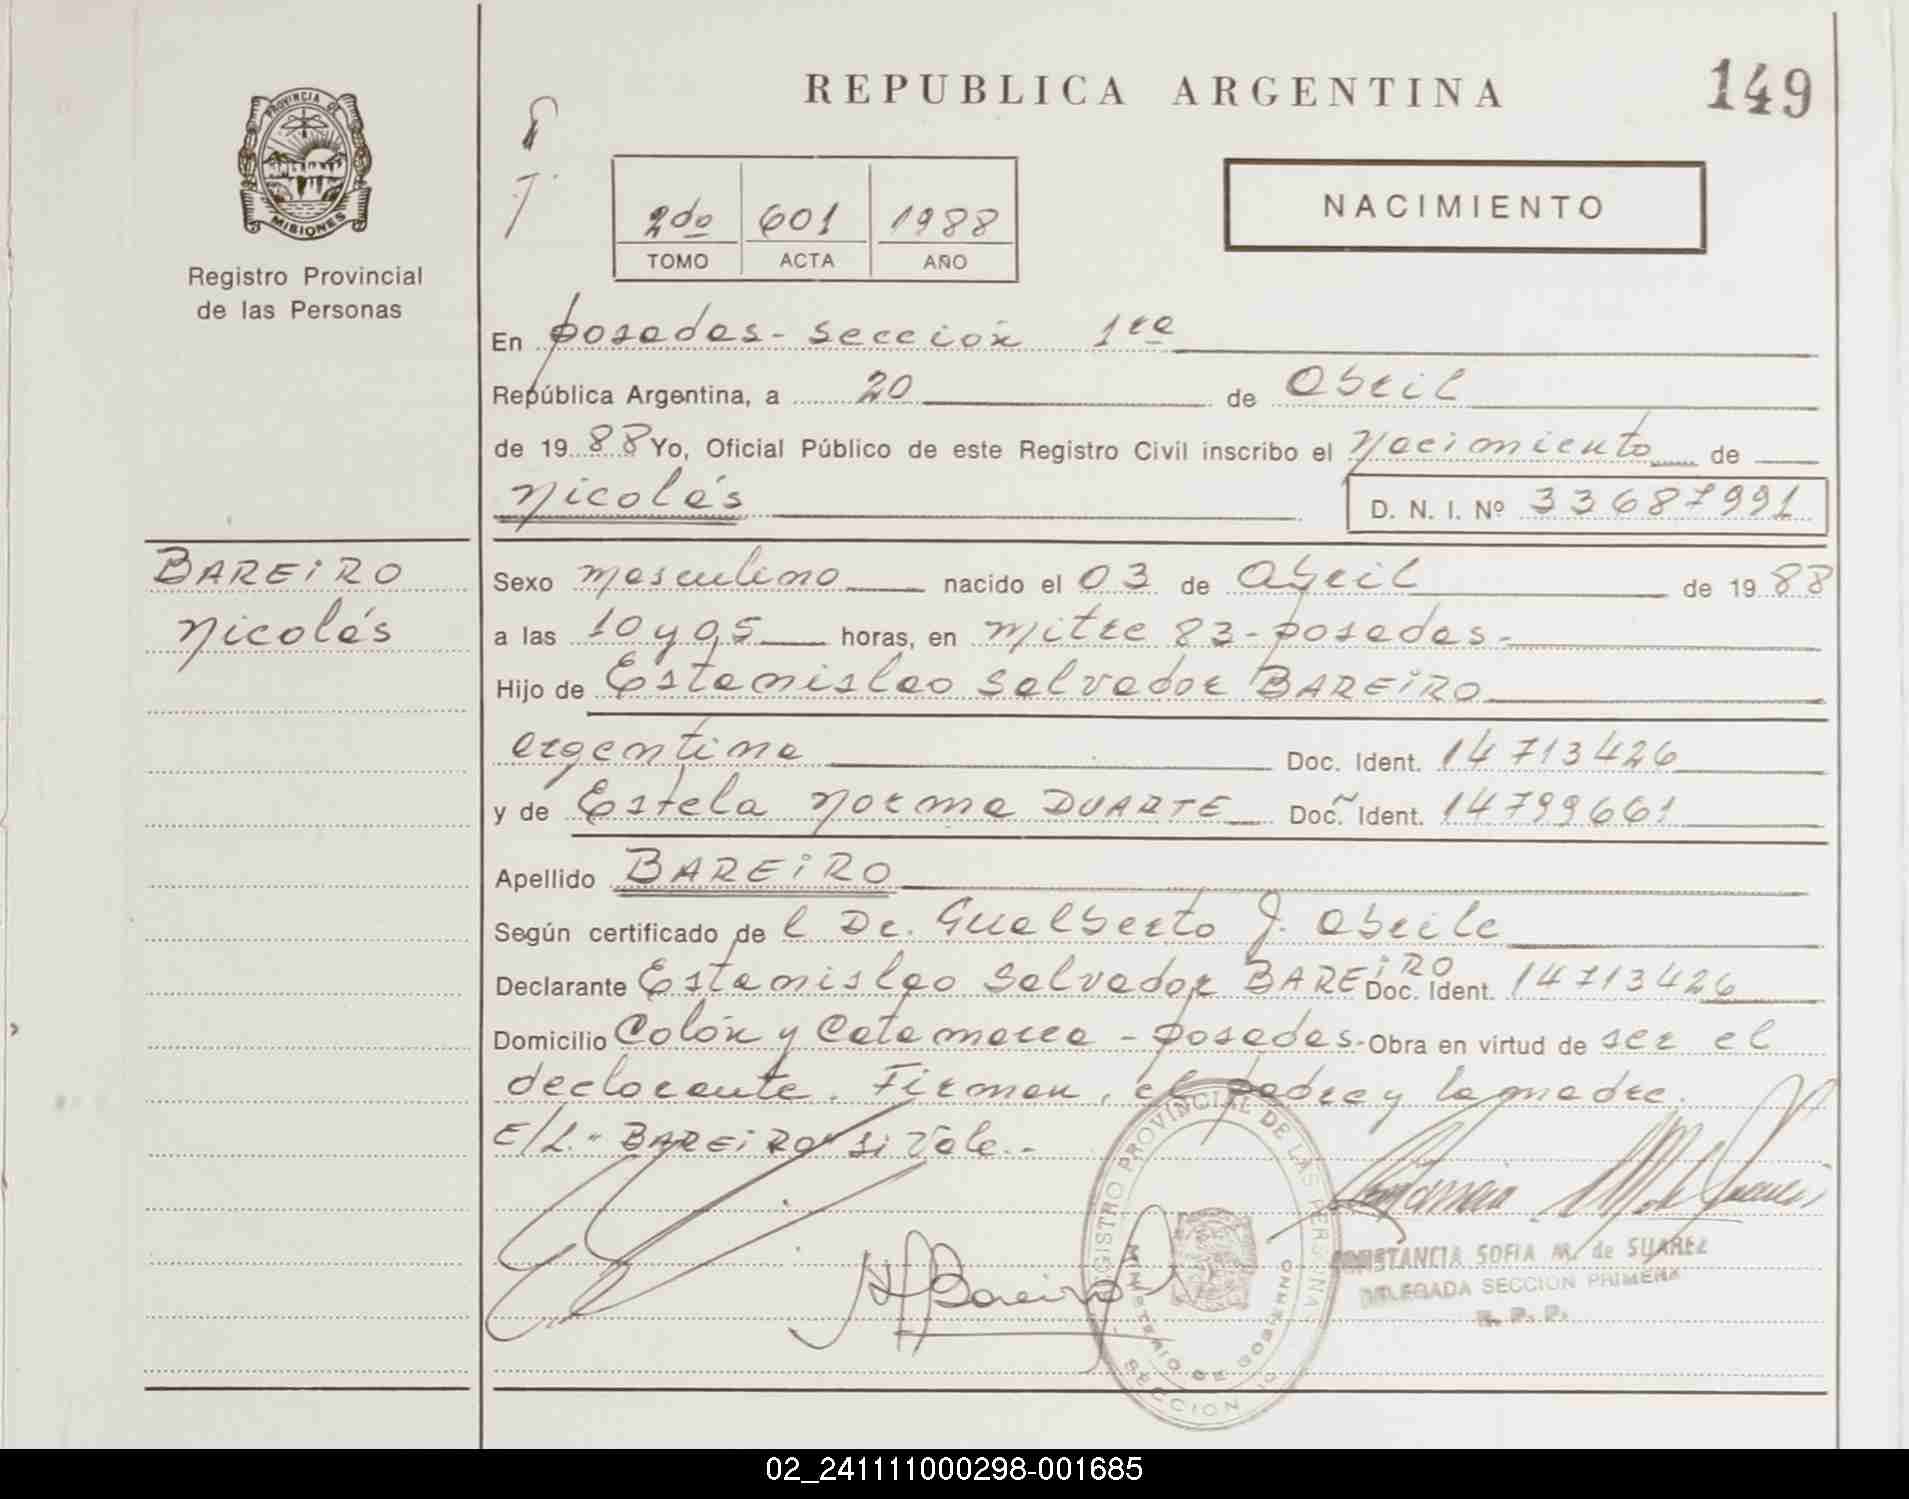 REPUBLICA ARGENTINA
149
PROVINCIA DE
MISIONES
Registro Provincial
de las Personas
2do 601 1988
TOMO ACTA AÑO
NACIMIENTO
En posadas - sección 1ra
República Argentina, a 20 de Abril
de 1988 Yo, Oficial Público de este Registro Civil inscribo el nacimiento de
Nicolás
D. N. I. Nº 33687991
BAREiRO
Nicolás
Sexo masculino nacido el 03 de Abril de 1988
a las 10 y 05 horas, en mitre 83 - posadas -
Hijo de Estanislao Salvador BAREiRO
argentina Doc. Ident. 14713426
y de Estela Norma DUARTE Doc. Ident. 14799661
Apellido BAREiRO
Según certificado de l Dr. Gualberto J. Abrile
Declarante Estanislao Salvador BAREiRO Doc. Ident. 14713426
Domicilio Colón y Catamarca - posadas - Obra en virtud de ser el
declarante. Firman, el padre y la madre.
E/L. " BAREiRO" Si Vale. -
REGISTRO PROVINCIAL DE LAS PERSONAS
MINISTERIO DE GOBIERNO
SECCION 1º
CONSTANCIA SOFIA M. de SUAREZ
DELEGADA SECCION PRIMERA
R. P. P.
02_241111000298-001685